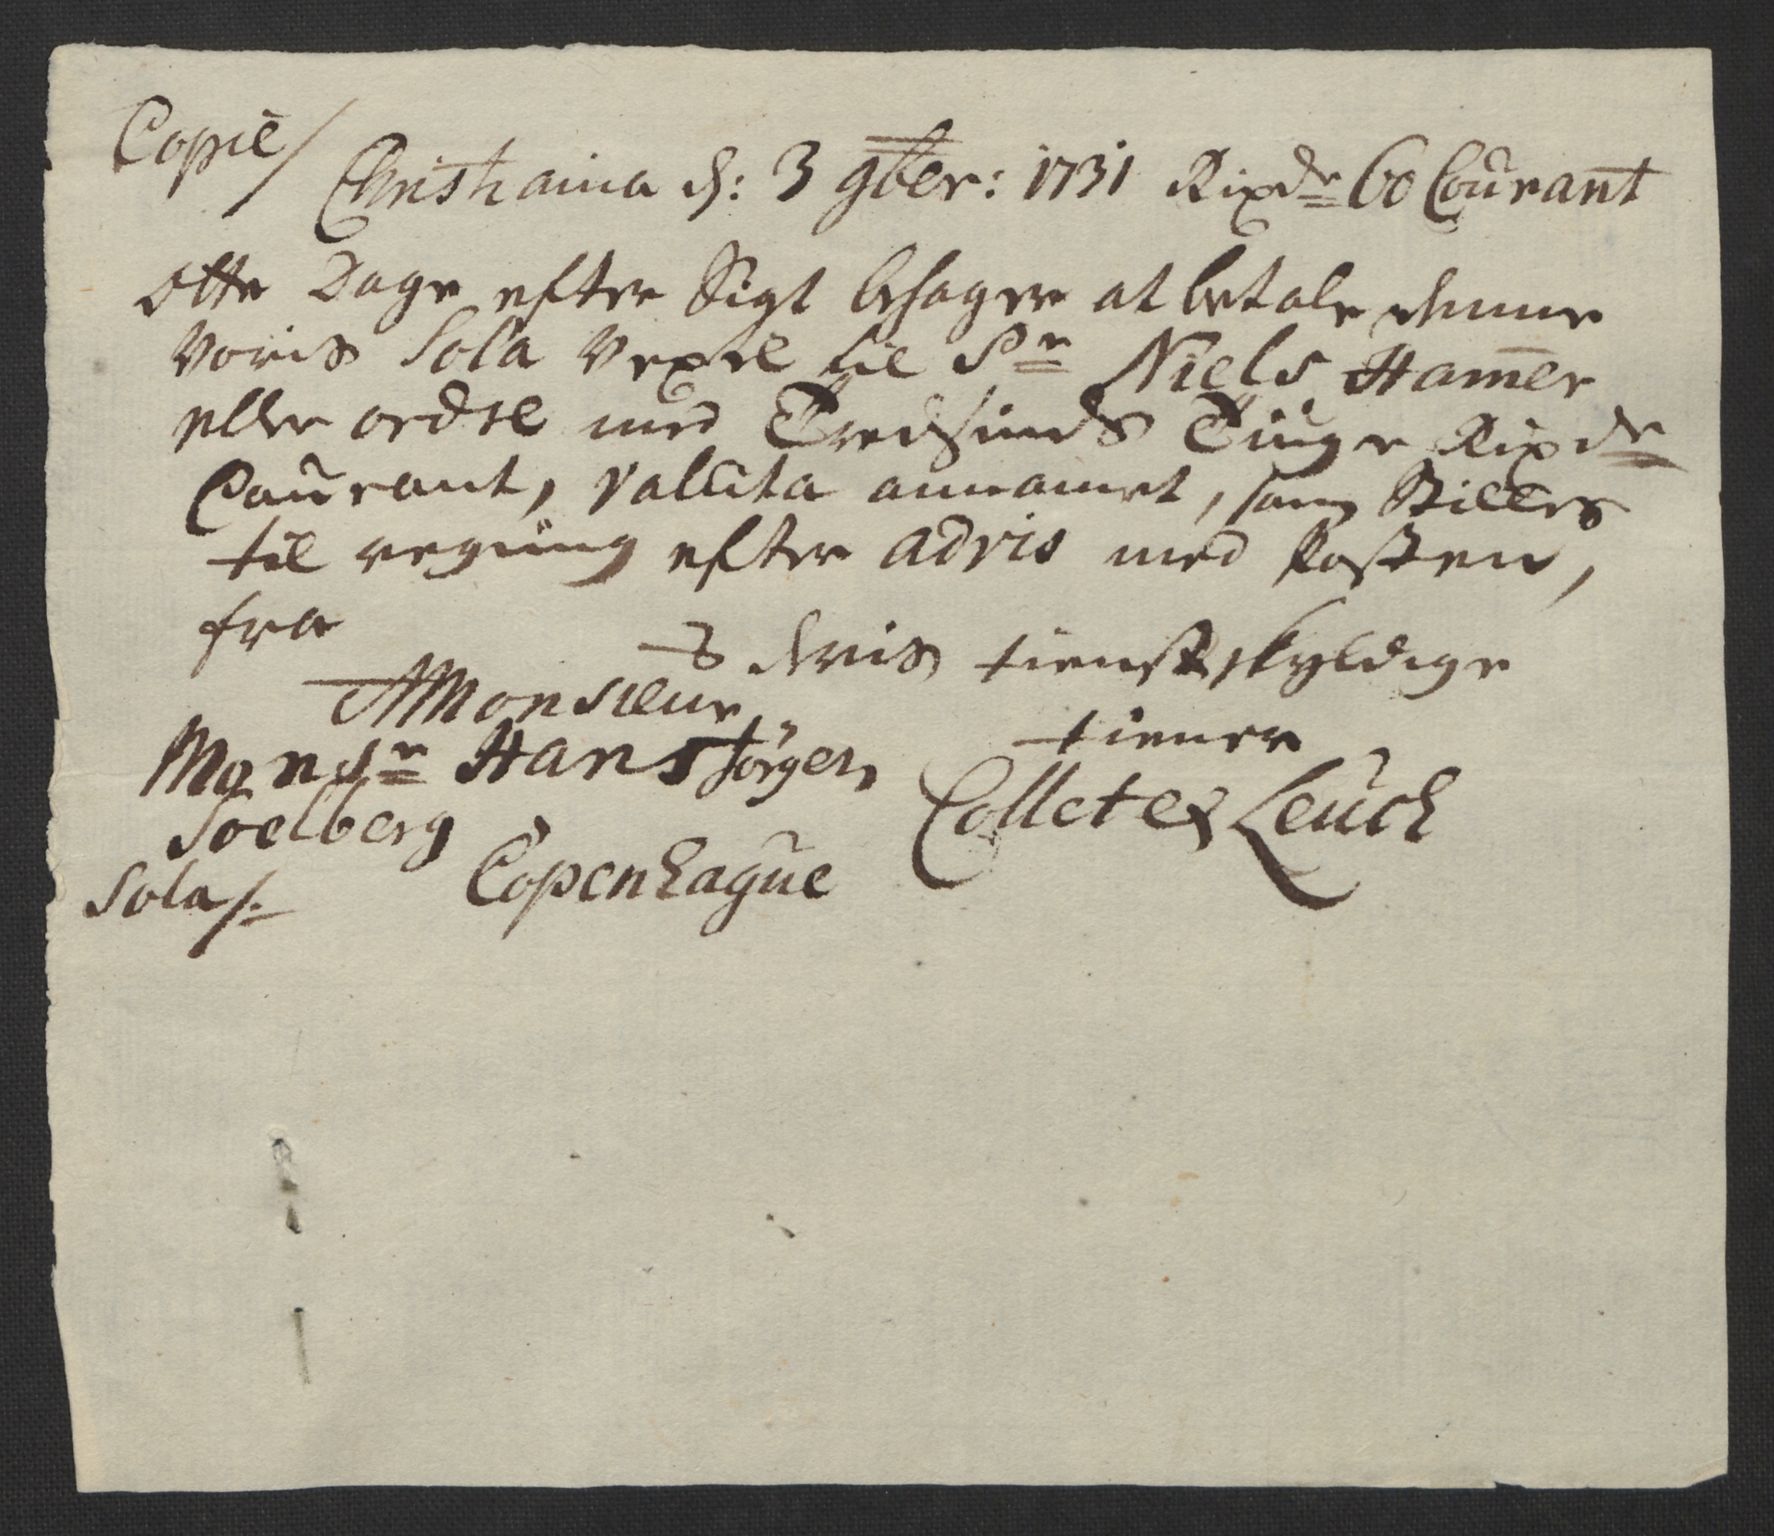 Copie/
Christiania d: 3 9ber: 1731 Rixdr 60 Courant
Otte Dage efter Sigt behager at betale denne
voris Sola Vexel til Sr Niels Ham̄er
eller ordre med Tredsinds Tiuge Rixdr
Courant, Valuta annamet, som Stilles
til regning efter advis med Posten,
fra
deris tienstskyldige
tienere
A Monsieur
Monsr Hans Jörgen
Soelberg
Collet & Leuch
Sola/.
Copenhague